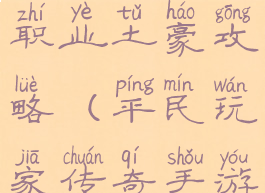 zhí yè tǔ háo gōng
职业土豪攻
lüè píng mín wán
略(平民玩
jiā chuán qí shǒu yóu
家传奇手游